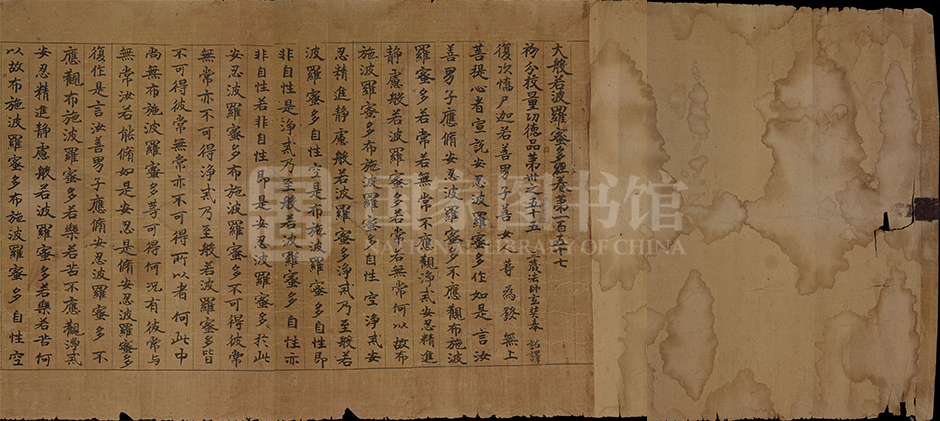 大般若波羅蜜多經卷第一百五十七
初分校量功德品第卅之五十五 三藏法師玄奘奉 詔譯
復次憍尸迦若善男子善女人等為發無上
菩提心者宣說安忍波羅蜜多作如是言汝
善男子應脩安忍波羅蜜多不應觀布施波
羅蜜多若常若無常不應觀淨戒安忍精進
靜慮般若波羅蜜多若常若無常何以故布
施波羅蜜多布施波羅蜜多自性空淨戒安
忍精進靜慮般若波羅蜜多淨戒乃至般若
波羅蜜多自性空是布施波羅蜜多自性即
非自性是淨戒乃至般若波羅蜜多自性亦
非自性若非自性即是安忍波羅蜜多於此
安忍波羅蜜多布施波羅蜜多不可得彼常
無常亦不可得淨戒乃至般若波羅蜜多皆
不可得彼常無常亦不可得所以者何此中
尚無布施波羅蜜多等可得何況有彼常與
無常汝若能脩如是安忍是脩安忍波羅蜜多
復作是言汝善男子應脩安忍波羅蜜多不
應觀布施波羅蜜多若樂若苦不應觀淨戒
安忍精進靜慮般若波羅蜜多若樂若苦何
以故布施波羅蜜多布施波羅蜜多自性空
國家图书馆
NATIONAL LIBRARY OF CHINA